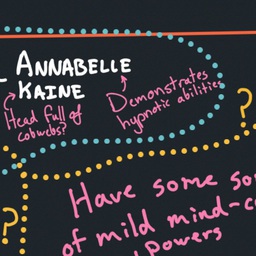 ANNABELLE
KAINE
Head full of
cobwebs?
Demonstrates
hypnotic abilities
?
Have some
of mild mind-
powers
?